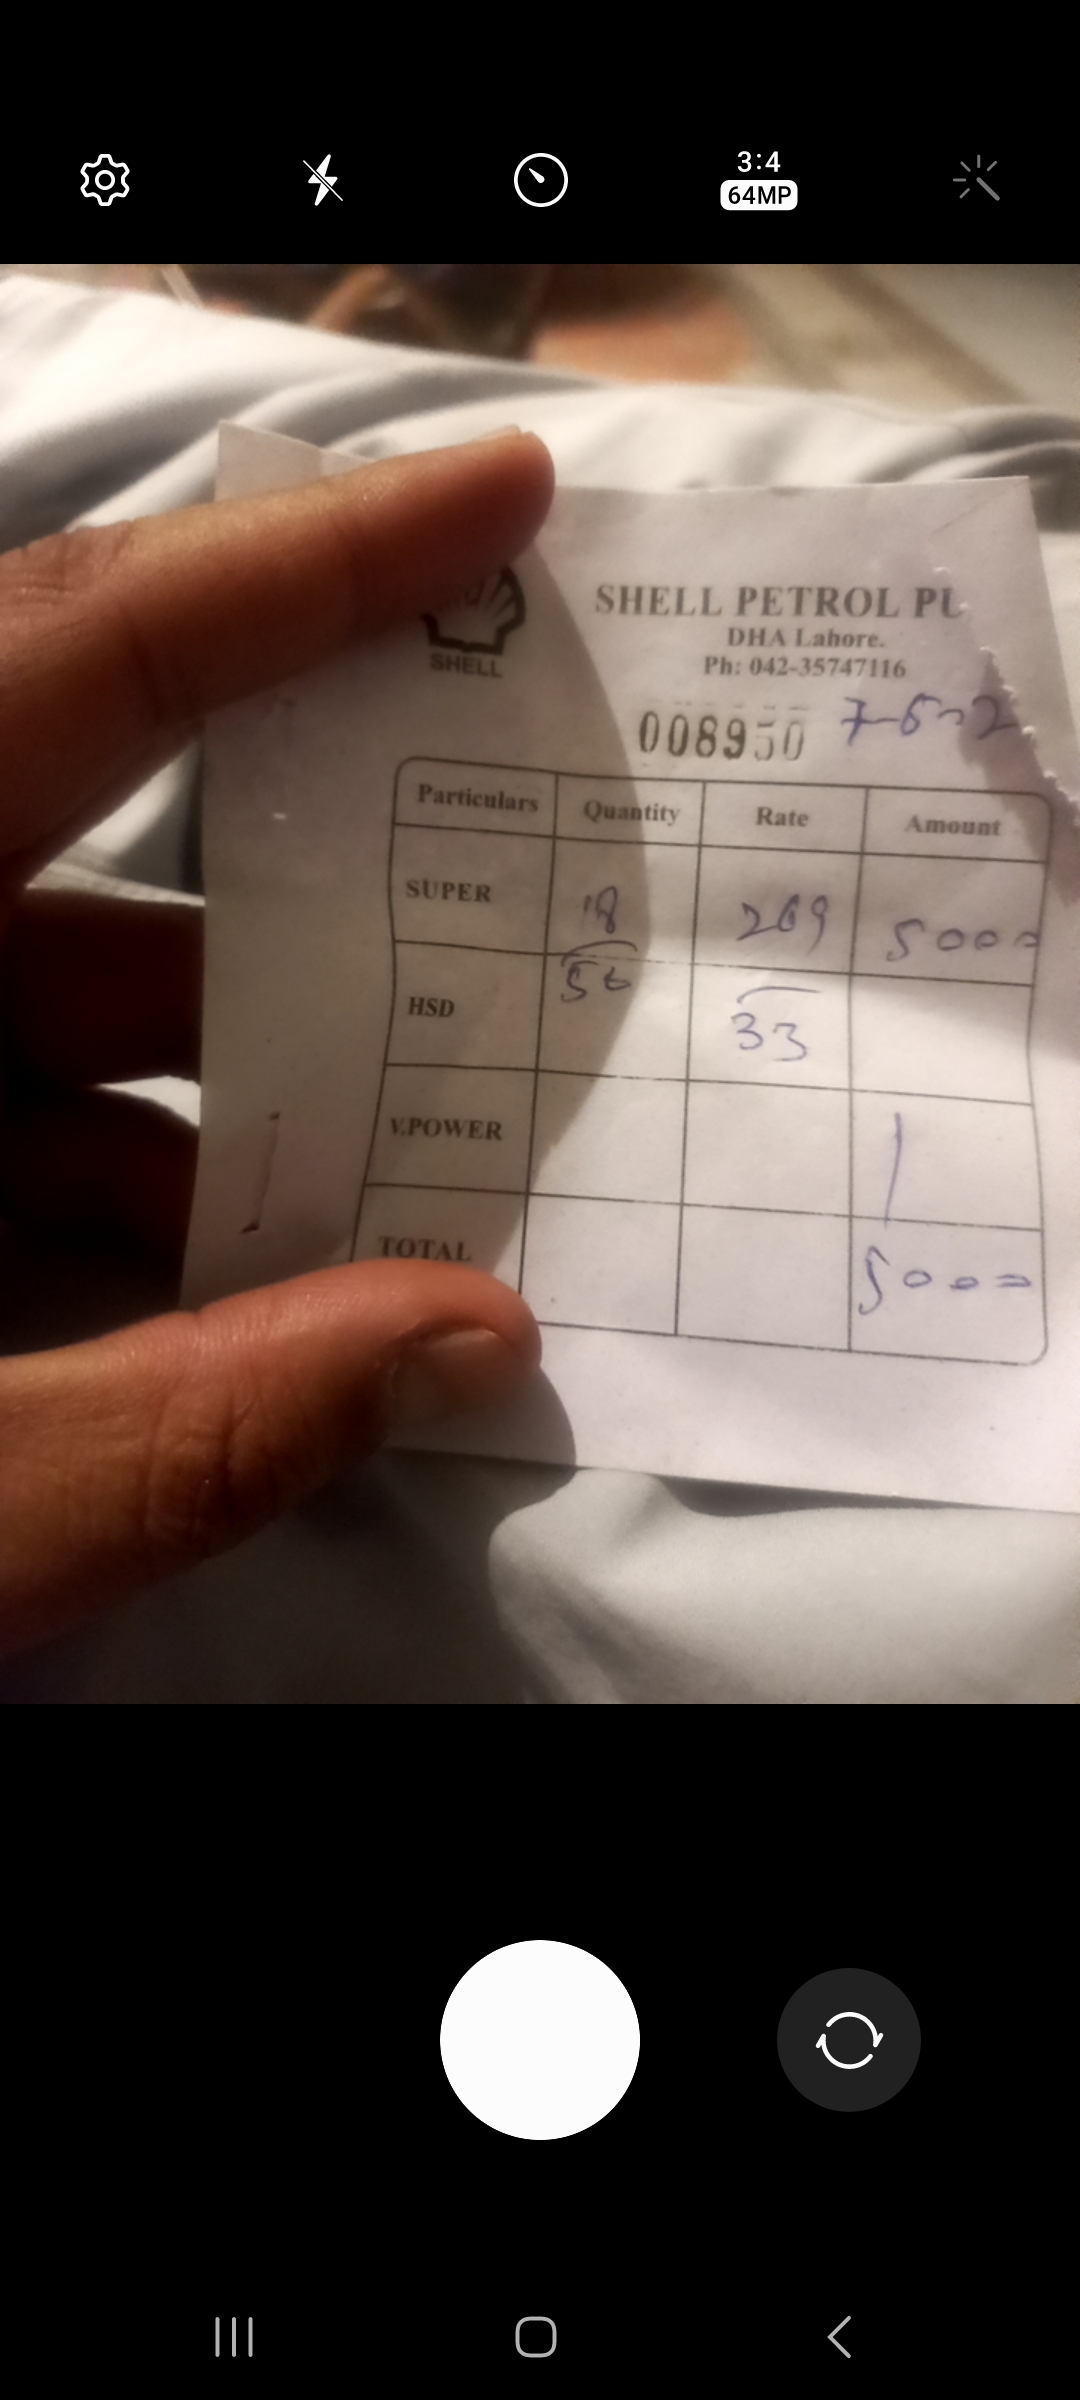 3:4
64MP
SHELL
SHELL PETROL PU
DHA Lahore.
Ph: 042-35747116
008950 7-6-2
Particulars Quantity Rate Amount
SUPER 18 269 5000
56 33
HSD
V.POWER
TOTAL 5000